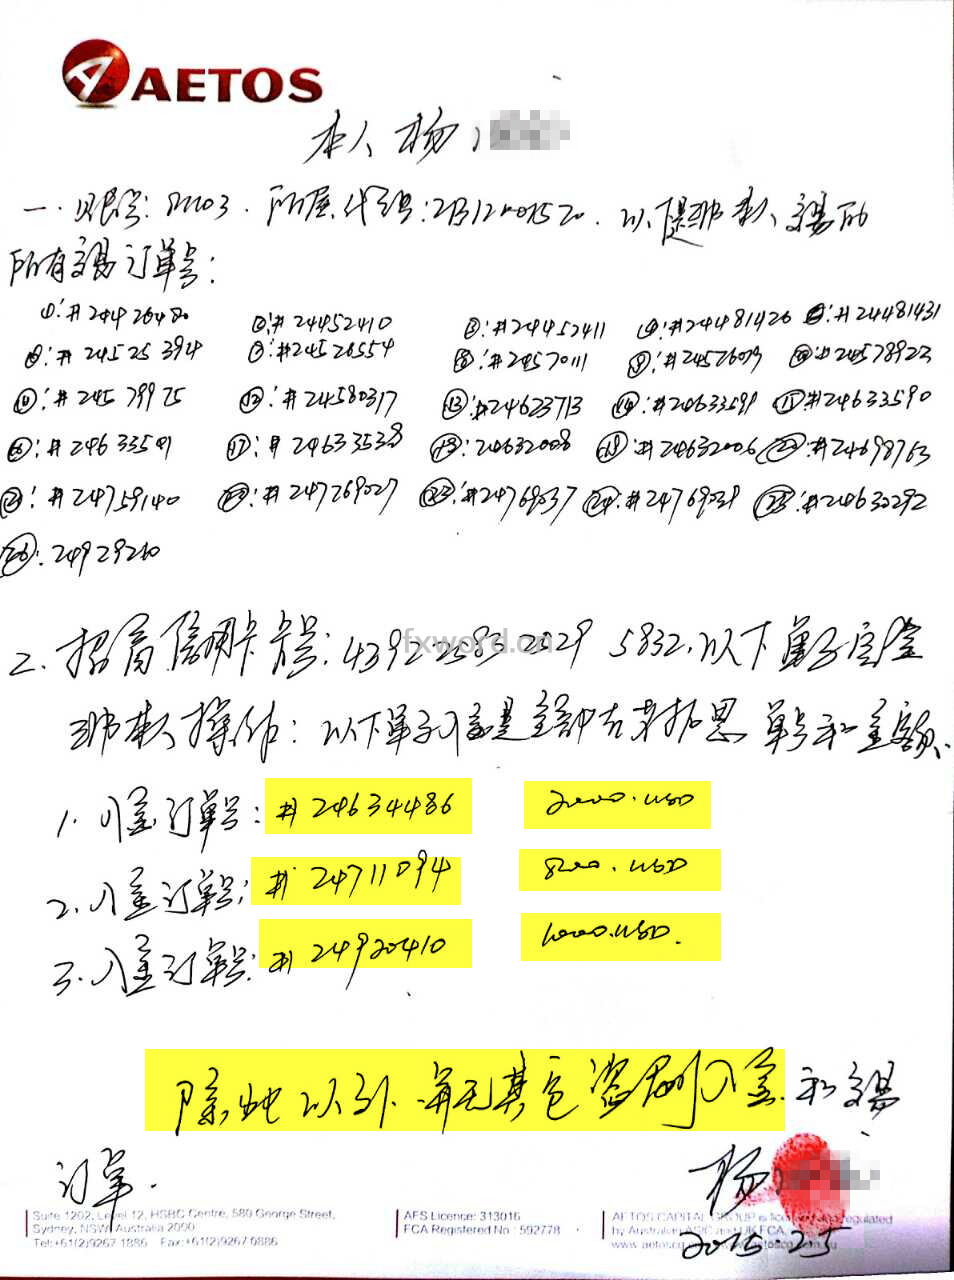 AETOS
本人 杨
一. 账号: 21103. 所属代码: 2B12001520. 以下是非本人交易的
所有交易订单号:
①: #24426480 ②: #24452410 ③: #24452411 ④: #24481426 ⑤: #24481431
⑥: #24525394 ⑦: #24526554 ⑧: #24570111 ⑨: #24576079 ⑩: #24578923
⑪: #24579975 ⑫: #24580317 ⑬: #24623713 ⑭: #24633591 ⑮: #24633590
⑯: #24633501 ⑰: #24633538 ⑱: 24632008 ⑲: #24632006 ⑳: #24698763
㉑: #24759140 ㉒: #247269027 ㉓: #24769037 ㉔: #24769039 ㉕: #24630292
㉖: 24929210
二. 招商信用卡卡号: 4392 2583 2529 5832. 以下单子完全
fxword.cn
非本人操作: 以下单子入金是全部 单号和金额.
1. 入金订单号: #24634486 2000.USD
2. 入金订单号: #24711094 8200.USD
3. 入金订单号: #24920410 1000.USD.
除此以外. 再无其它盗刷入金和交易
订单.
杨
Suite 1202, Level 12, HSBC Centre, 580 George Street, AFS Licence: 313016 AETOS CAPITAL GROUP is licensed and regulated
Sydney, NSW Australia 2000 FCA Registered No : 592778 by Australia ASIC and UK FCA
Tel:+61(2)9267 1886 Fax:+61(2)9267 0886
2015.2.5